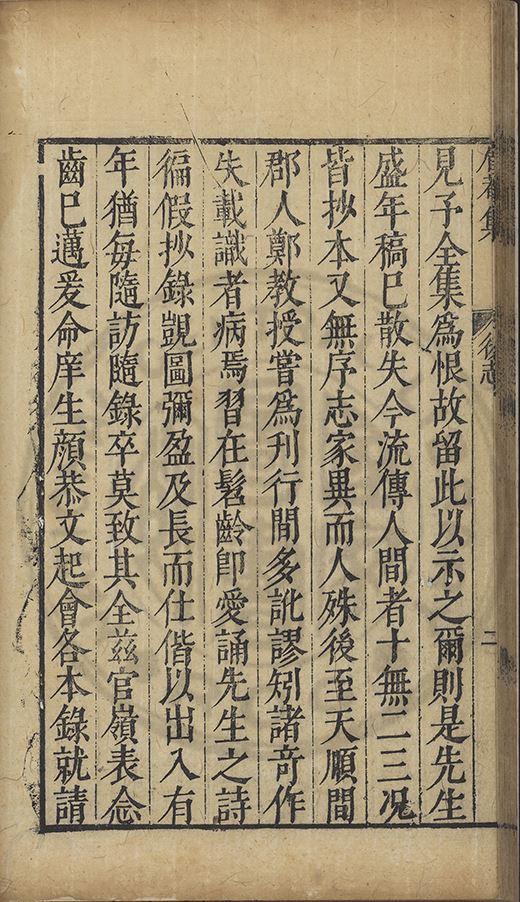 後志
二
見予全集爲恨故留此以示之爾則是先生
盛年稿已散失今流傳人間者十無二三况
皆抄本又無序志家異而人殊後至天順間
郡人鄭教授嘗爲刋行間多訛謬矧諸竒作
失載識者病焉習在髫齡即愛誦先生之詩
徧假抄錄覬圖彌盈及長而仕偕以出入有
年猶每隨訪隨錄卒莫致其全兹官嶺表念
齒已邁爰命庠生顔恭文起會各本錄就請